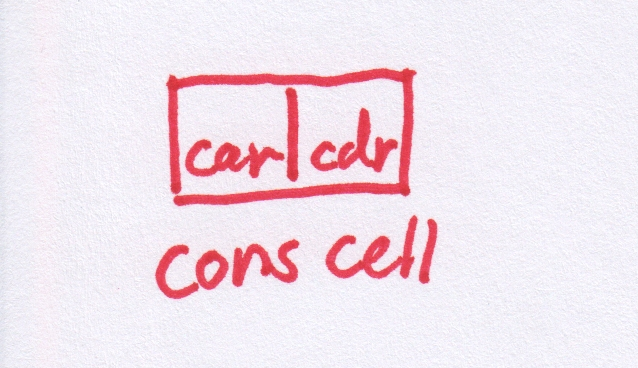 car cdr
cons cell